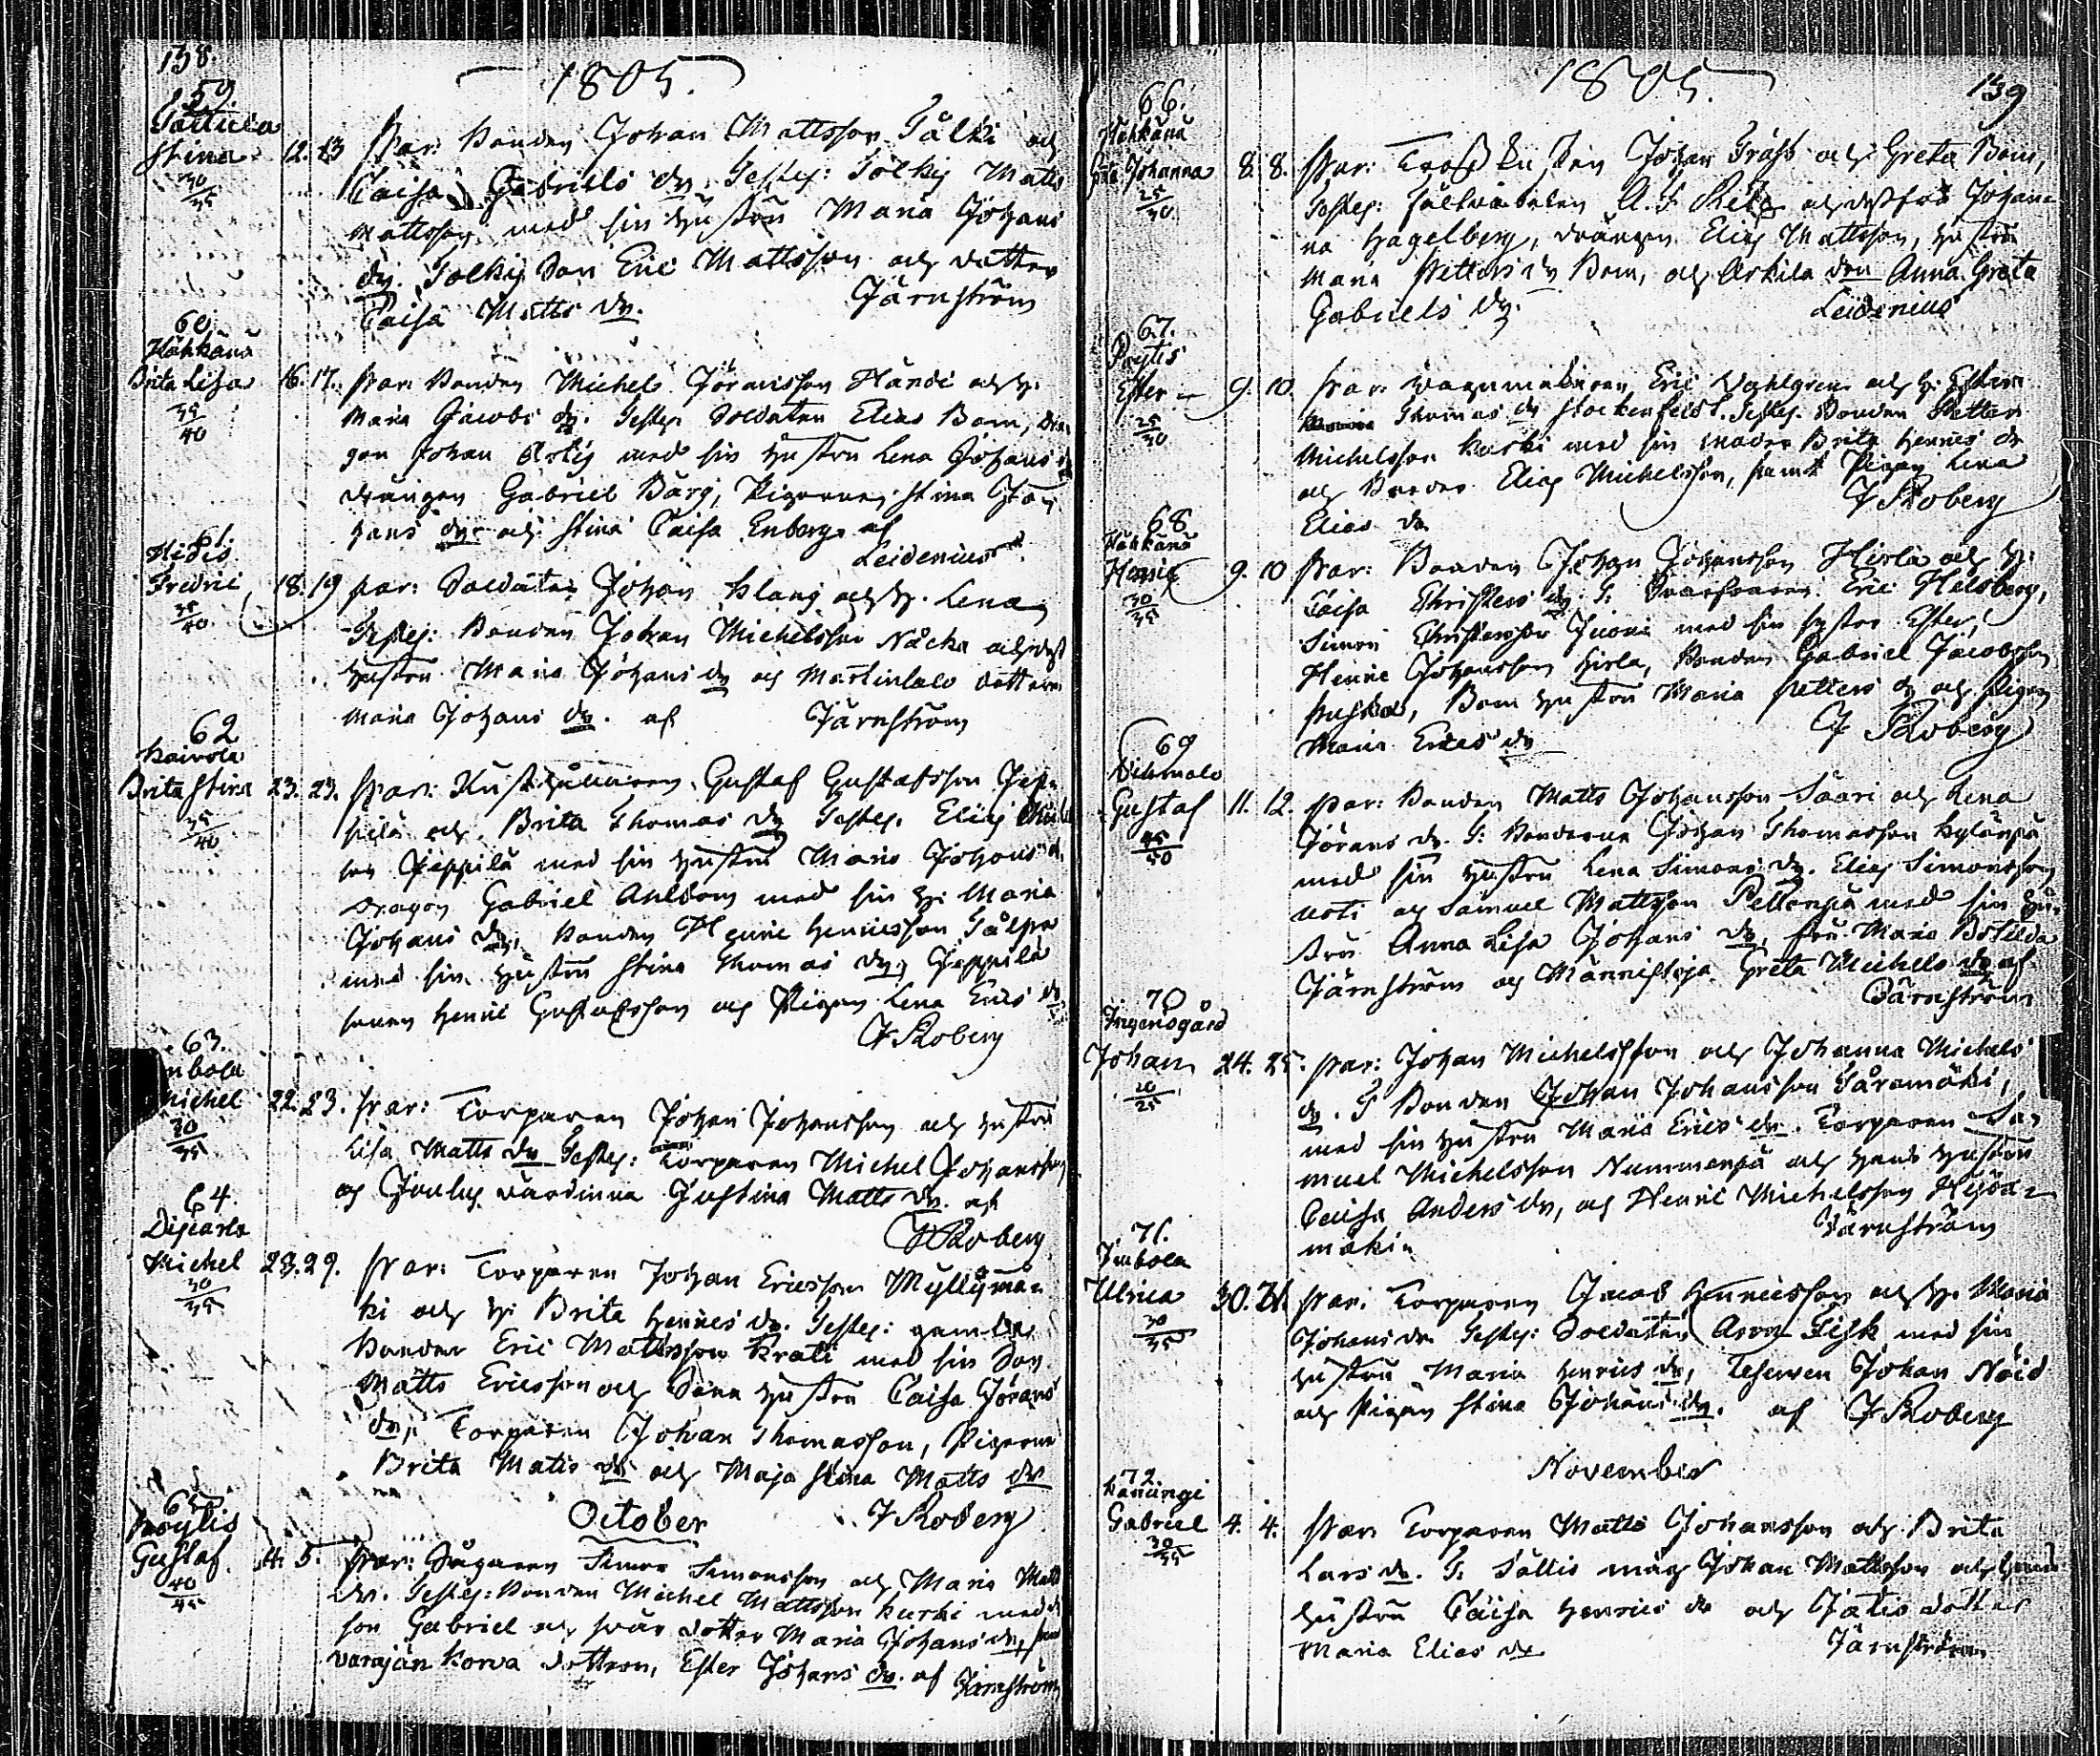 138.
1805.
59.
Stina 12. 13 Par: Bonden Johan Mattsson Sålki och
30
35
Caisa Gabriels dr. Testes: Matts
Mattsson med sin hustru Maria Johans
dr. Son Eric Mattsson och dotter
Caisa Matts dr. Järnström
60.
Hähkänä
Brita Lisa 16. 17. Par: Bonden Michel Göransson Händi och h:
35
40
Maria Jacobs dr. Testes: Soldaten Elias Bom, dra-
gon Johan Artig med sin hustru Lena Johans dr
drängen Gabriel Bärg, Pigorna Stina Jo-
hans dr och Stina Caisa Enberg af
Leidenius
61.
Fredric 18. 19 Par: Soldaten Johan Klang och h. Lena
35
40
Testes: Bonden Johan Michelsson och dess
hustru Maria Johans dr och Martinlalo dottren
Maria Johans dr. af Järnström
62
Kaivola
Brita Stina 23. 23. Par: Gustaf Gustafsson Jep-
35
40
pilä och Brita Thomas dr Testes. Elias
son Jeppilä med sin hustru Maria Johans dr
Dragon Gabriel Ahlbom med sin h: Maria
Johans dr, Bonden Henric Henricsson
med sin hustru Stina Thomas dr, Jeppilä
sonen Henric Gustafsson och Pigan Lena Erics dr
J Skoberg
63.
Michel 22. 23. Par: Torparen Johan Johansson och hustru
30
35
Lisa Matts dr Testes: Torparen Michel Johansson
och värdinna Justina Matts dr. af
J Skoberg
64.
Michel 23. 29. Par: Torparen Johan Ericsson Myllymä-
30
35
ki och h: Brita Henrics dr. Testes: gamle
Bonden Eric Mattsson Krati med sin Son
Matts Ericsson och Sona hustru Caisa Görans
dr, Torparen Johan Thomasson, Pigorne
Brita Matts dr och Maja Stina Matts dr
October J Skoberg
65.
Pöytis
Gustaf 4. 5. Par: Simon Simonsson och Maria Matts
40
45
dr. Testes: Bonden Michel Mattsson Kurki med
son Gabriel och svär dotter Maria Johans dr,
Varajän Korva dottren, Ester Johans dr. af Järnström
1805. 139
66.
Hähkänä
Johanna 8. 8. Par: Johan Gräsb och Greta Bom,
25
30
Testes: A. F. och dess fru Johan-
na Hagelberg, drängen Elias Mattsson, hustru
Maria Petters dr Bom, och Arkila dra Anna Greta
Gabriels dr. Leidenius
67.
Pöytis
Ester 9. 10. Par: Vagnmakaren Eric Vahlgren och h: Ester
25
30
Thomas dr Testes. Bonden Petter
Michelsson Kurki med sin moder Brita Henrics dr
och Broder Elias Michelsson, samt Pigan Lena
Elias dr J Skoberg
68.
Hähkänä
Henric 9. 10 Par: Bonden Johan Johansson Hirla och h:
30
35
Caisa Christers dr T: Eric Helsberg,
Simon Christersson Juoni med sin syster Ester,
Henric Johansson Hirla, Bonden Gabriel Jacobsson
Bom hustru Maria Petters dr och Pigan
Maria Erics dr J Skoberg
69
Gustaf 11. 12. Par: Bonden Matts Johansson Saari och Lena
45
50
Görans dr. T: Bönderna Johan Thomasson Kylänpä
med sin hustru Lena Simons dr. Elias Simonsson
Uoti och Samuel Mattsson Pellonpä med sin hu-
stru Anna Lisa Johans dr, fru Maria Botilda
Järnström och Mannistoja Greta Michels dr af
Järnström
70
Yrjensgård
Johan 24. 25. Par: Johan Michelsson och Johanna Michels
20
25
dr. T Bonden Johan Johansson
med sin hustru Maria Erics dr. Torparen Sa-
muel Michelsson Nummenpä och hans hustru
Caisa Anders dr, och Henric Michelsson
mäki. Järnström
71.
Ulrica 30. 31. Par: Torparen Jacob Henricsson och h: Maria
30
35
Johans dr. Testes: Soldaten Aron Fisk med sin
hustru Maria Henrics dr, Johan Nöid
och Pigan Stina Johans dr. af J Skoberg
November
72.
Gabriel 4. 4. Par: Torparen Matts Johansson och Brita
30
35
Lars dr. T. måg Johan Mattsson och hans
hustru Caisa Henrics dr och dotter
Maria Elias dr Järnström